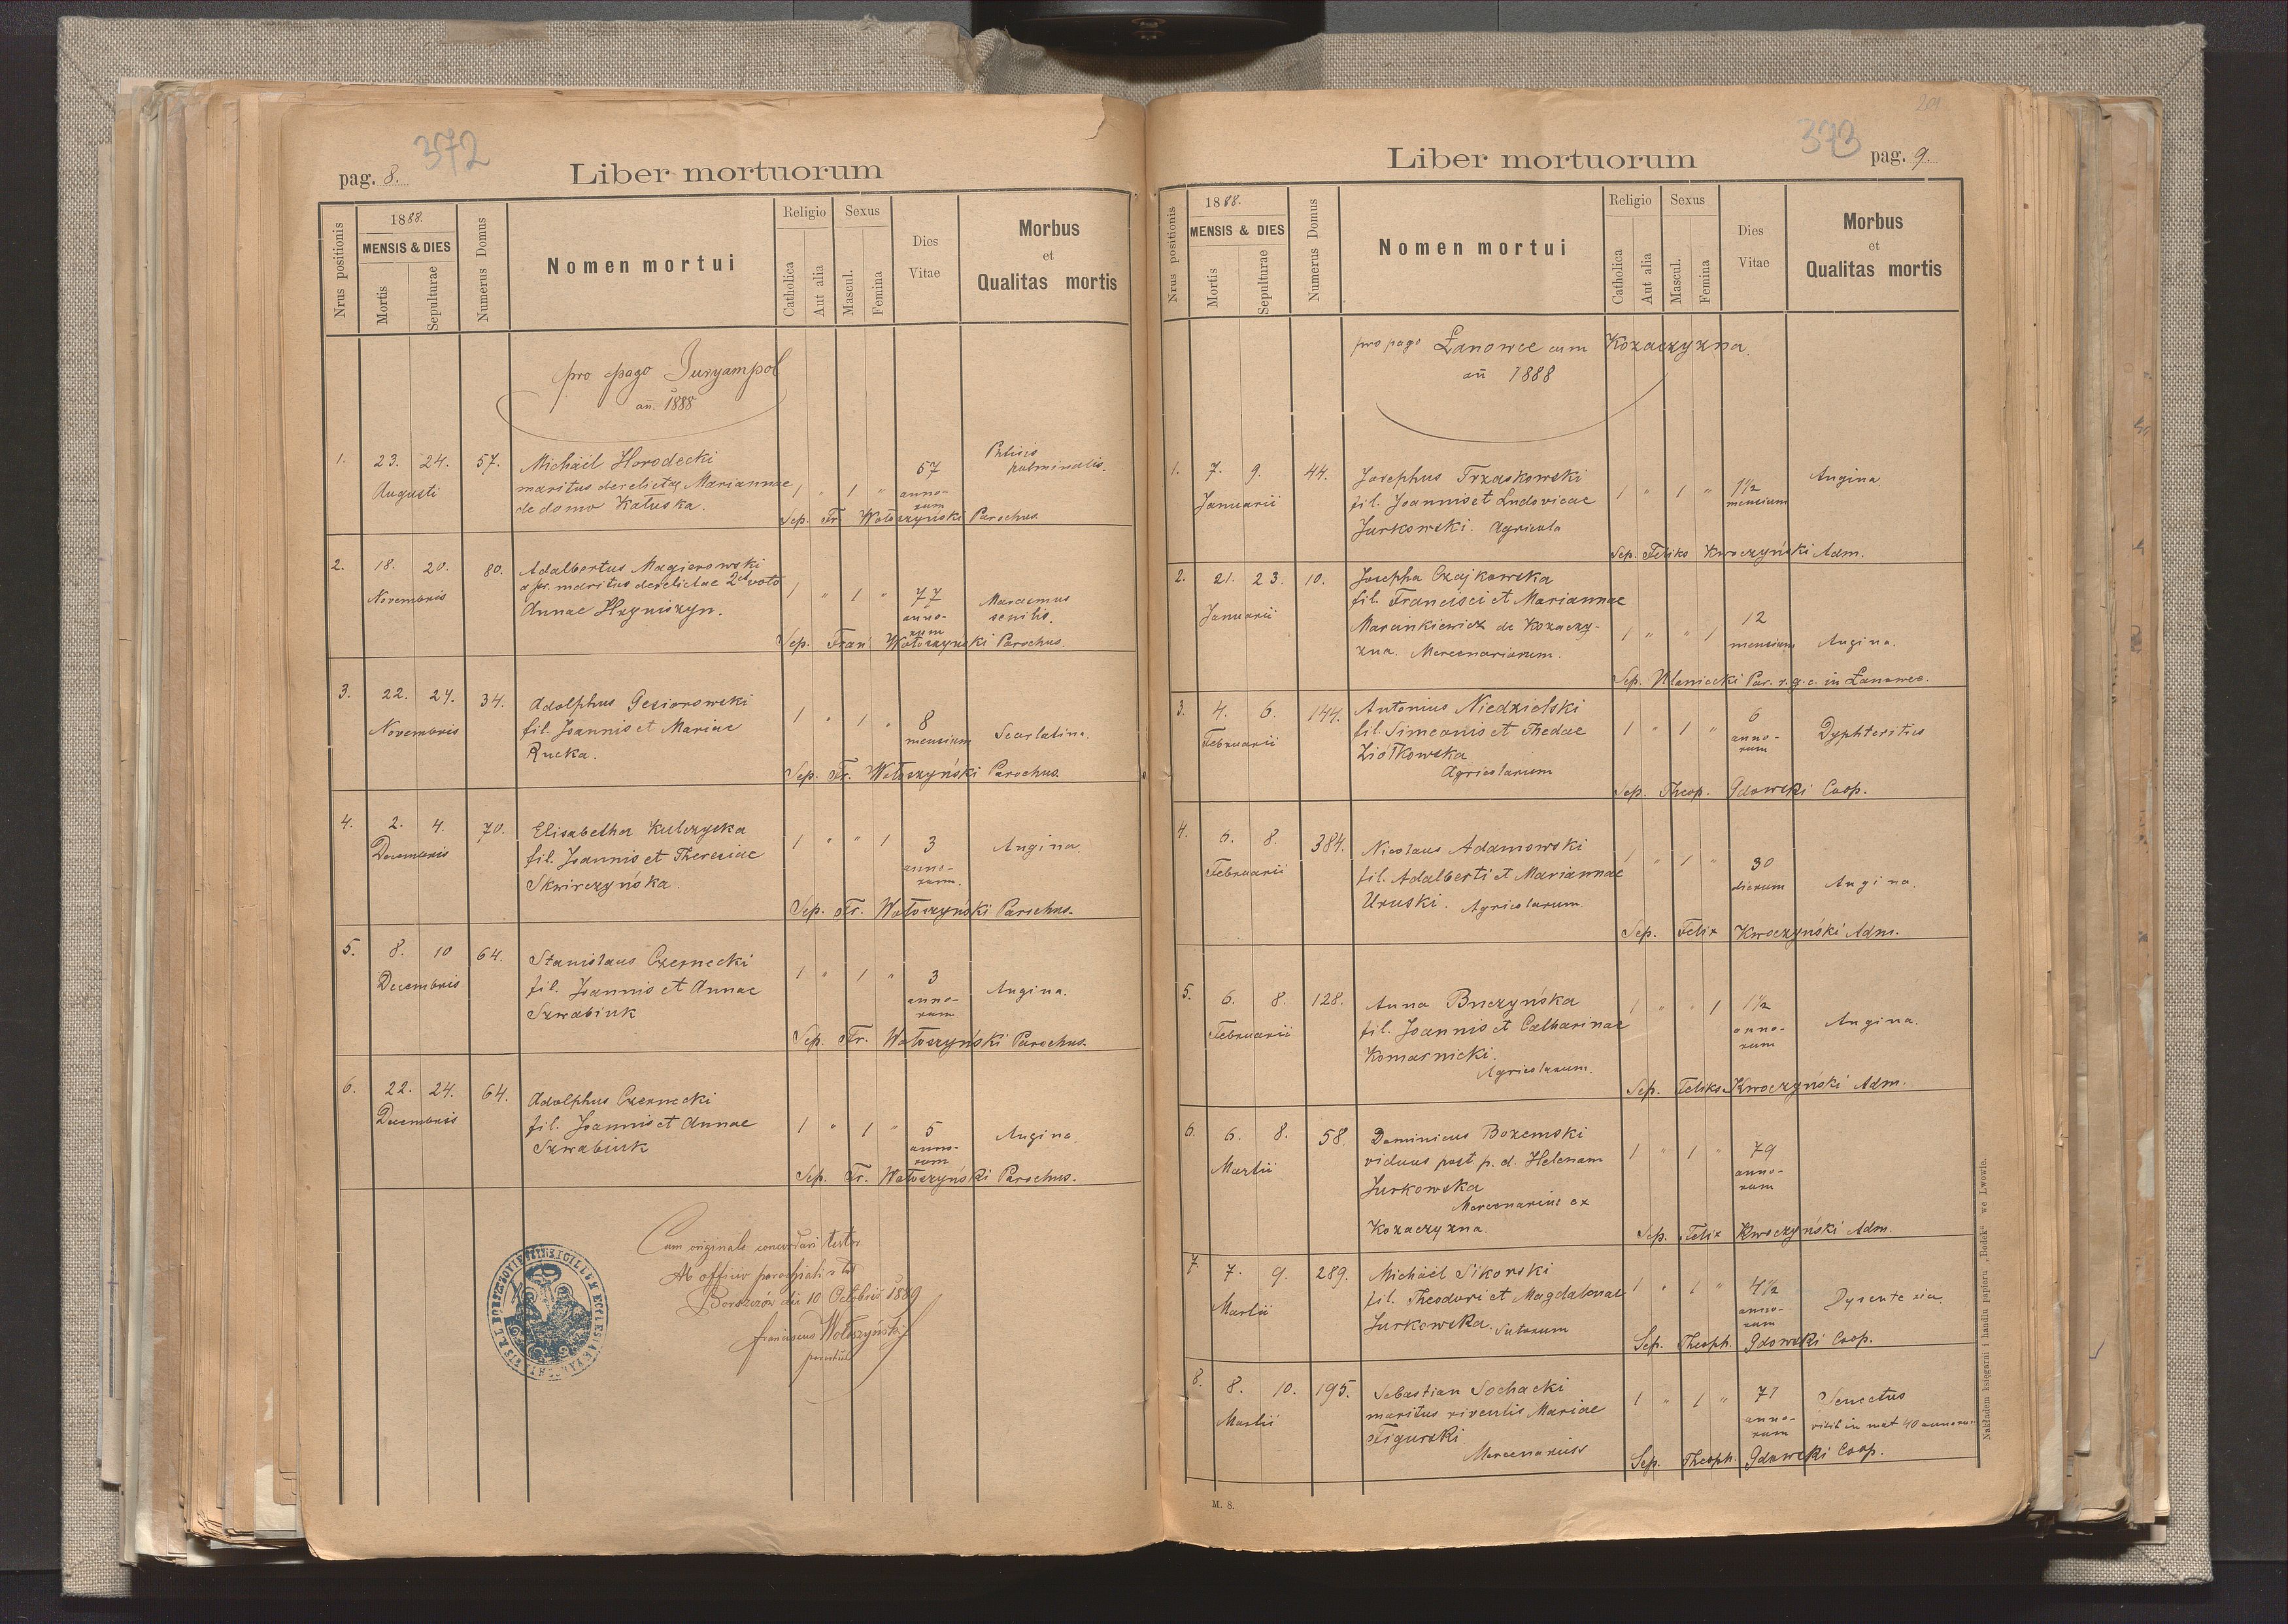 372
pag. 8.
Liber mortuorum
Nrus positionis
1888.
MENSIS & DIES
Mortis
Sepulturae
Numerus Domus
Nomen mortui
Religio
Catholica
Aut alia
Sexus
Mascul.
Femina
Dies
Vitae
Morbus
et
Qualitas mortis
pro pago Juryampol
an̄. 1888
1. 23. 24. 57. Michäel Horodecki 57 Phtisis
pulminalis.
Augusti maritus derelictae Mariannae 1 " 1 " anno-
de domo Kałuska. rum
Sep. Fr. Wołoszyński Parochus.
2. 18. 20. 80. Adalbertus Magierowski
maritus derelictae 2do voto
Novembris 1 " 1 " 77 Marasmus
Annae Hryniszyn. anno- senilis.
rum
Sep. Fran Wołoszyński Parochus.
3. 22. 24. 34. Adolphus Gesiorowski
Novembris fil. Joannis et Mariae 1 " 1 " 8
mensium Scarlatina.
Rucka.
Sep. Fr. Wołoszyński Parochus.
4. 2. 4. 70. Elisabetha Kulczycka
Decembris fil. Joannis et Theresiae 1 " " 1 3 Angina.
anno-
rum.
Skwirczyńska.
Sep. Fr. Wołoszyński Parochus.
5. 8. 10 64. Stanislaus Czernecki
Decembris fil. Joannis et Annae 1 " 1 " 3 Angina.
anno-
rum
Szwabiuk
Sep. Fr. Wołoszyński Parochus.
6. 22. 24. 64. Adolphus Czernecki
Decembris fil. Joannis et Annae 1 " 1 " 5 Angina.
anno-
rum
Szwabiuk
Sep. Fr. Wołoszyński Parochus.
Cum originale concordari testor
Ab officio parochiali r. l.
Borszczów die 10 Octobris 1889
Franciscus Wołoszyński
parochus
373
Liber mortuorum
pag. 9.
Nrus positionis
1888.
MENSIS & DIES
Mortis
Sepulturae
Numerus Domus
Nomen mortui
Religio
Catholica
Aut alia
Sexus
Mascul.
Femina
Dies
Vitae
Morbus
et
Qualitas mortis
pro pago Łanowce cum Kozaczyzna
an̄ 1888
1. 7. 9. 44. Josephus Trzaskowski Angina.
Januarii fil. Joannis et Ludovicae 1 " 1 " 1 1/2
mensium
Jurkowski. Agricola
Sep. Feliks Kwoczyński Adm.
2. 21. 23. 10. Josepha Czajkowska
fil. Francisci et Mariannae
Januarii Marcinkiewicz de Kozaczy- 1 " " 1 12
mensium Angina.
zna. Mercenariorum.
Sep. Ulaniecki Par. r. g. c. in Łanowce.
3. 4. 6. 144. Antonius Niedzielski
Februarii fil. Simeonis et Thedae 1 " 1 " 6 Dyphteritis
anno-
rum
Ziółkowska
Agricolarum
Sep. Theop. Gdowski Coop.
4. 6. 8. 384. Nicolaus Adamowski
Februarii fil. Adalberti et Mariannae 1 " 1 " 30
dierum Angina.
Uruski. Agricolarum.
Sep. Felix Kwoczyński Adm.
5. 6. 8. 128. Anna Buczyńska 1 " " 1 1 1/2
Februarii fil. Joannis et Catharinae anno- Angina.
rum
Komarnicki.
Agricolarum.
Sep. Feliks Kwoczyński Adm.
6. 6. 8. 58. Dominicus Bożemski
Martii viduus post. p. d. Helenam 1 " 1 " 79
anno-
rum
Jurkowska
Mercenarius ex
Kozaczyzna.
Sep. Felix Kwoczyński Adm.
7. 7. 9. 289. Michäel Sikorski
Martii fil. Theodori et Magdalenae 1 " 1 " 4 1/2 Dysenteria.
anno-
rum
Jurkowska. Sutorum
Sep. Theoph. Gdowski Coop.
8. 8. 10. 195. Sebastian Sochacki 1 " 1 " 71 Senectus
Martii maritus viventis Mariae anno- vixit in mat 40 annorum
rum
Figurski
Mercenarius
Sep. Theoph. Gdowski Coop.
M. 8.
Nakładem księgarni i handlu papieru „Bodek" we Lwowie.